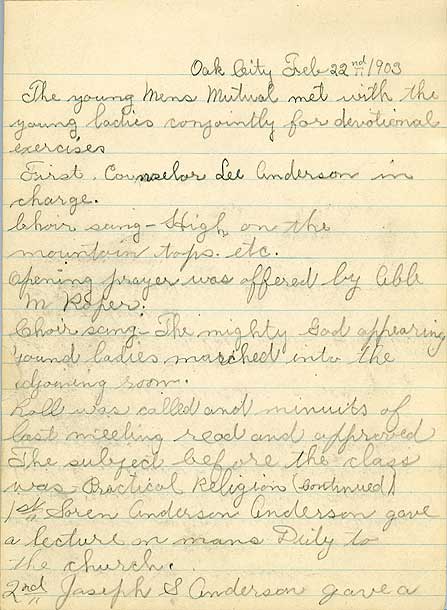 Oak City Feb 22nd 1903
The young Mens Mutual met with the
young ladies conjointly for devotional
exercises
First. Counselor Lee Anderson in
charge.
Choir sang - High on the
mountain tops. etc.
Opening prayer was offered by Able
M Roper.
Choir sang - The mighty God appearing
Yound ladies marched into the
adjoining room.
Roll was called and minuits of
last meeting read and approved
The subject before the class
was Practical Religion (Continued)
1st Soren Anderson Anderson gave
a lecture on mans Duty to
the church.
2nd Joseph S Anderson gave a